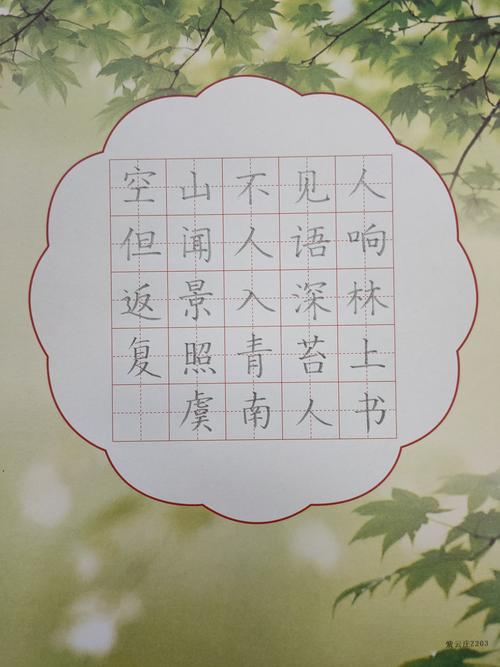 空山不见人
但闻人语响
返景入深林
复照青苔上
虞南人书
紫云庄Z203